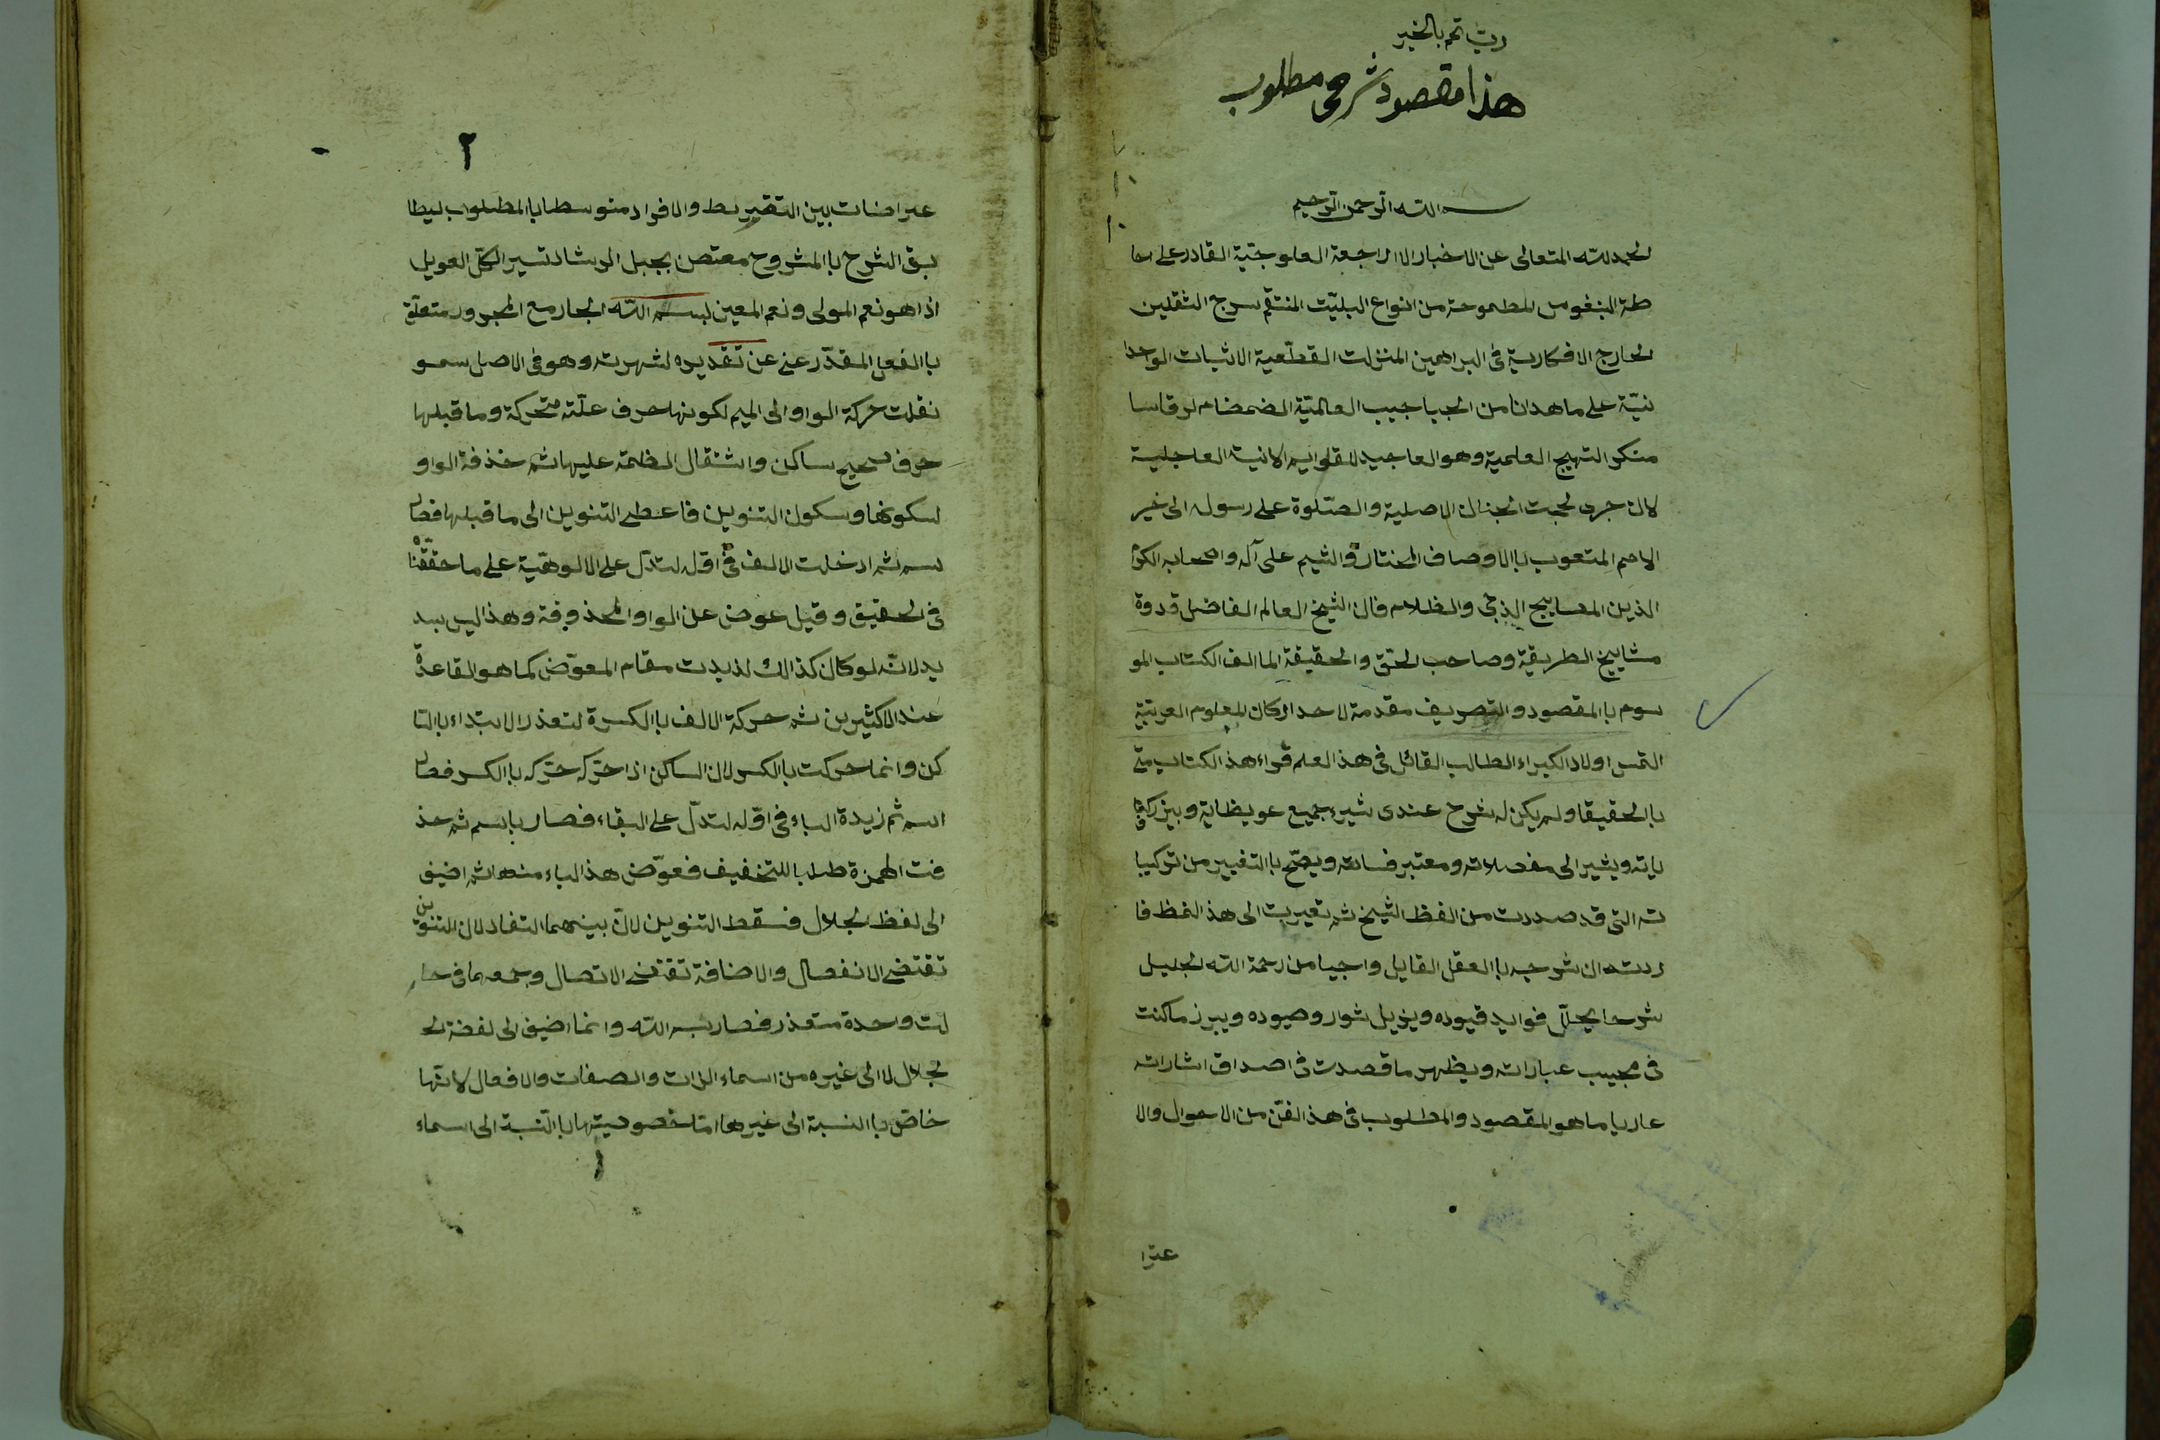 رب تمم بالخير
هذا مقصود شرحى مطلوب
بسم الله الرحمن الرحيم
الحمد لله المتعالى عن الاخبار الا الراجعة العلوجتية القادر على احا
طة النفوس المطموحة من انواع البليت المنتقم سرج الثقلين
لخارج الافكارية فى البراهين المنزلت القطعية الاثبات الواحدا
نية على ما هدانا من الجبا جيب العالمية
منكر النهيج العلمية وهو العاجيد العاجلية
لان جرى لحجت الجنان الاصلية والصلوة على رسوله الى خير
الامم المتعوب باالاوصاف المختارة والشيم على آله واصحابه الكرا
الذين المصابيح الدجى والظلام فان الشيخ العالم الفاضل قدوة
مشاييخ الطريقة وصاحب الحق والحقيقة الماالف الكتاب المو
سوم باالمقصود والتصريف مقدمة لاحد اركان للعلوم العربية
التمس اولاد الكبراء الطالب القائل فى هذ العلم قراء هذ الكتاب منى
باالحقيقا ولم يكن له شرح عندى شيرء جميع عويظاية وبيز ركا
ياته ويشير الى مفصلاته ومعتبر فساته ويصح باالتغيير من تركيبا
ته التى قد صدرت من الفظ الشيخ ثم تغيربت الى هذ النمظ فا
ردت ان شرحيه باالعقل القايل واجيا من رحمة الله الجليل
شرحا يحلل فوايد قيوده ويزيل شوار وصيوده ويبرز ما كنت
فى مجيب عباراته ويظهر ما قصدت فى اصداق اشاراته
عاريا ما هو المقصود والمطلوب فى هذ الفن من الاحوال والا
عترا
٢
عتراضات بين التقيريط والافراد متوسطا باالمطلوب ليطا
بق الشرح باالمشروح معتص بجبل الرشاد تسير الكل العويل
اذا هو نعم المولى ونعم المعين بسم الله الجار مع المجرور متعلق
باالفعل المقدر عنى عن تقديره لشهرته وهو فى الاصل سمو
نقلت حركة الواو الى الميم لكونها حرف علته متحركة وما قبلها
حرف صحيح ساكن واشتقال الظمة عليها ثم خذفة الواو
لسكونها وسكون التنوين فاعطى التنوين الى ما قبلها فصار
سم ثم ادخلت الالف فى اوله لتدل على الالوهية على ما حققنا
فى الحقيق وقيل عوض عن الواو المحذوفة وهذا ليس ببد
يد لانه لو كان كذالك لذيدت مقام المعوض كما هو القاعدة
عند الاكثيرين ثم حركة الالف باالكسرة لتعذر الابتداء باالسا
كن وانما حركت باالكسر لان الساكن اذا حركه حركه باالكسر فصار
اسم ثم زيدة الباء فى اوله لتدل على البقاء فصار باسم ثم حذ
فت الهمزة طلبا للتخفيف فعوض هذ الباء منها ثم اضيف
الى لفظ الجلال فسقط التنوين لان بينهما التفاد لان التنوين
تقتضى الانفصال والاضافة تقتضى الاتصال وجمعهما فى حا
لت واحدة متعذر فصار بسم الله وانما اضيف الى لفضة الجـ
ـجلال لا الى غيره من اسماء الذات والصفات والافعال لانها
خاص باالنسبة الى غيرها اما خصوصيتها باالنسبة الى اسماء